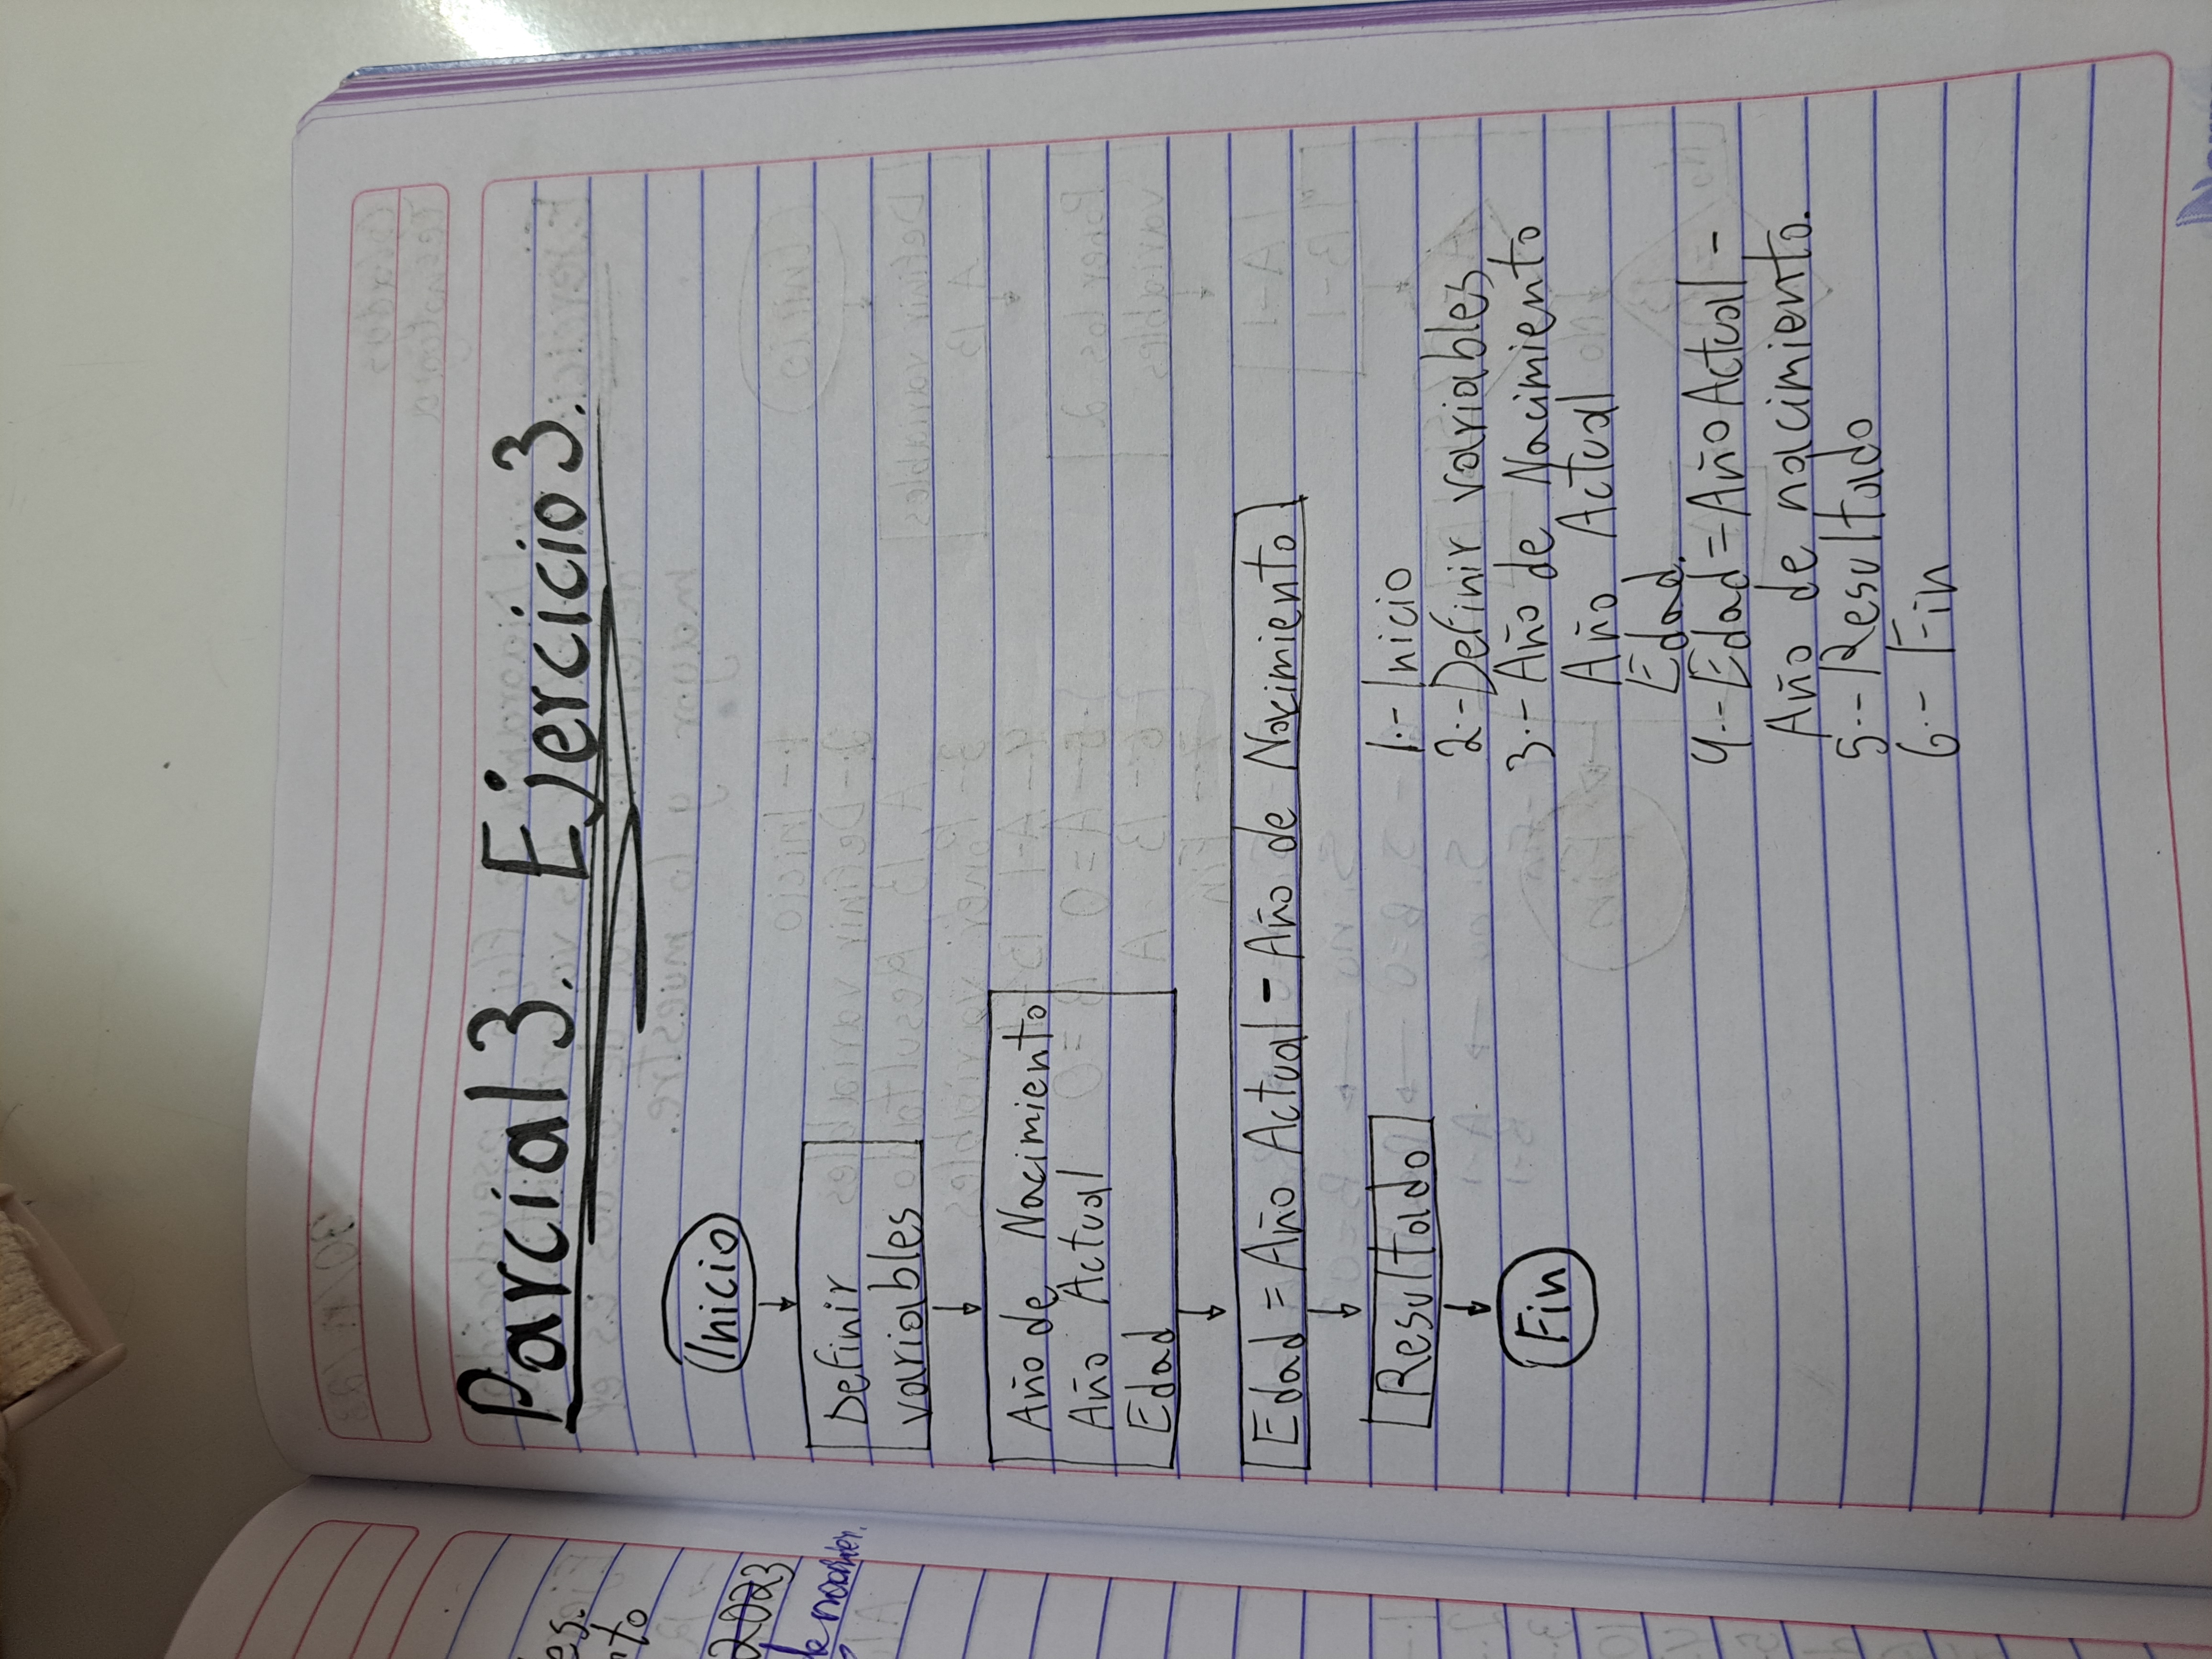 Parcial 3. Ejercicio 3.
Inicio
Definir
variables
Año de Nacimiento
Año Actual
Edad
Edad = Año Actual - Año de Nacimiento
Resultado
Fin
1.- Inicio
2.- Definir variables
3.- Año de Nacimiento
Año Actual
Edad.
4.- Edad = Año Actual -
Año de nacimiento.
5.- Resultado
6.- Fin
es.
nto
2023